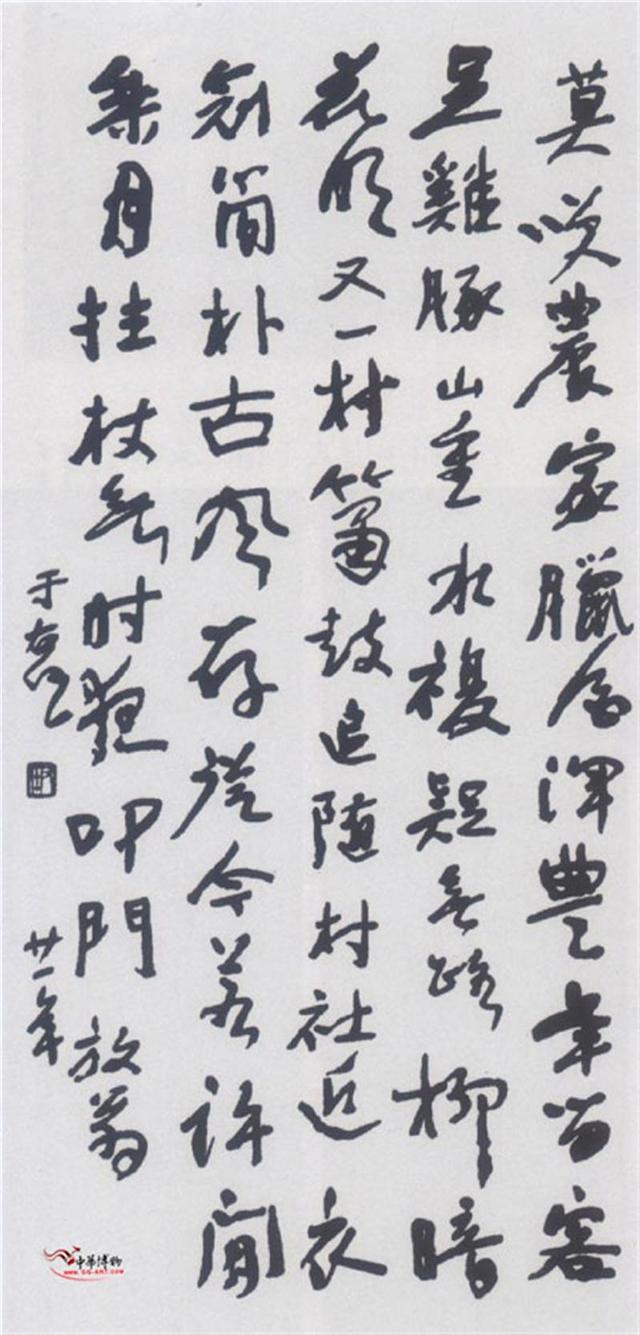 莫咲農家臘酒渾豐年留客
足雞豚山重水複疑無路柳暗
花明又一村簫鼓追隨村社近衣
冠簡朴古風存從今若許閒
乘月拄杖無時夜叩門 放翁
于右任 廿一年
中華博物
WWW.GG-ART.COM